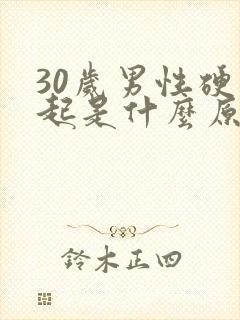 30歲男性硬
起是什麼原
鈴木正四